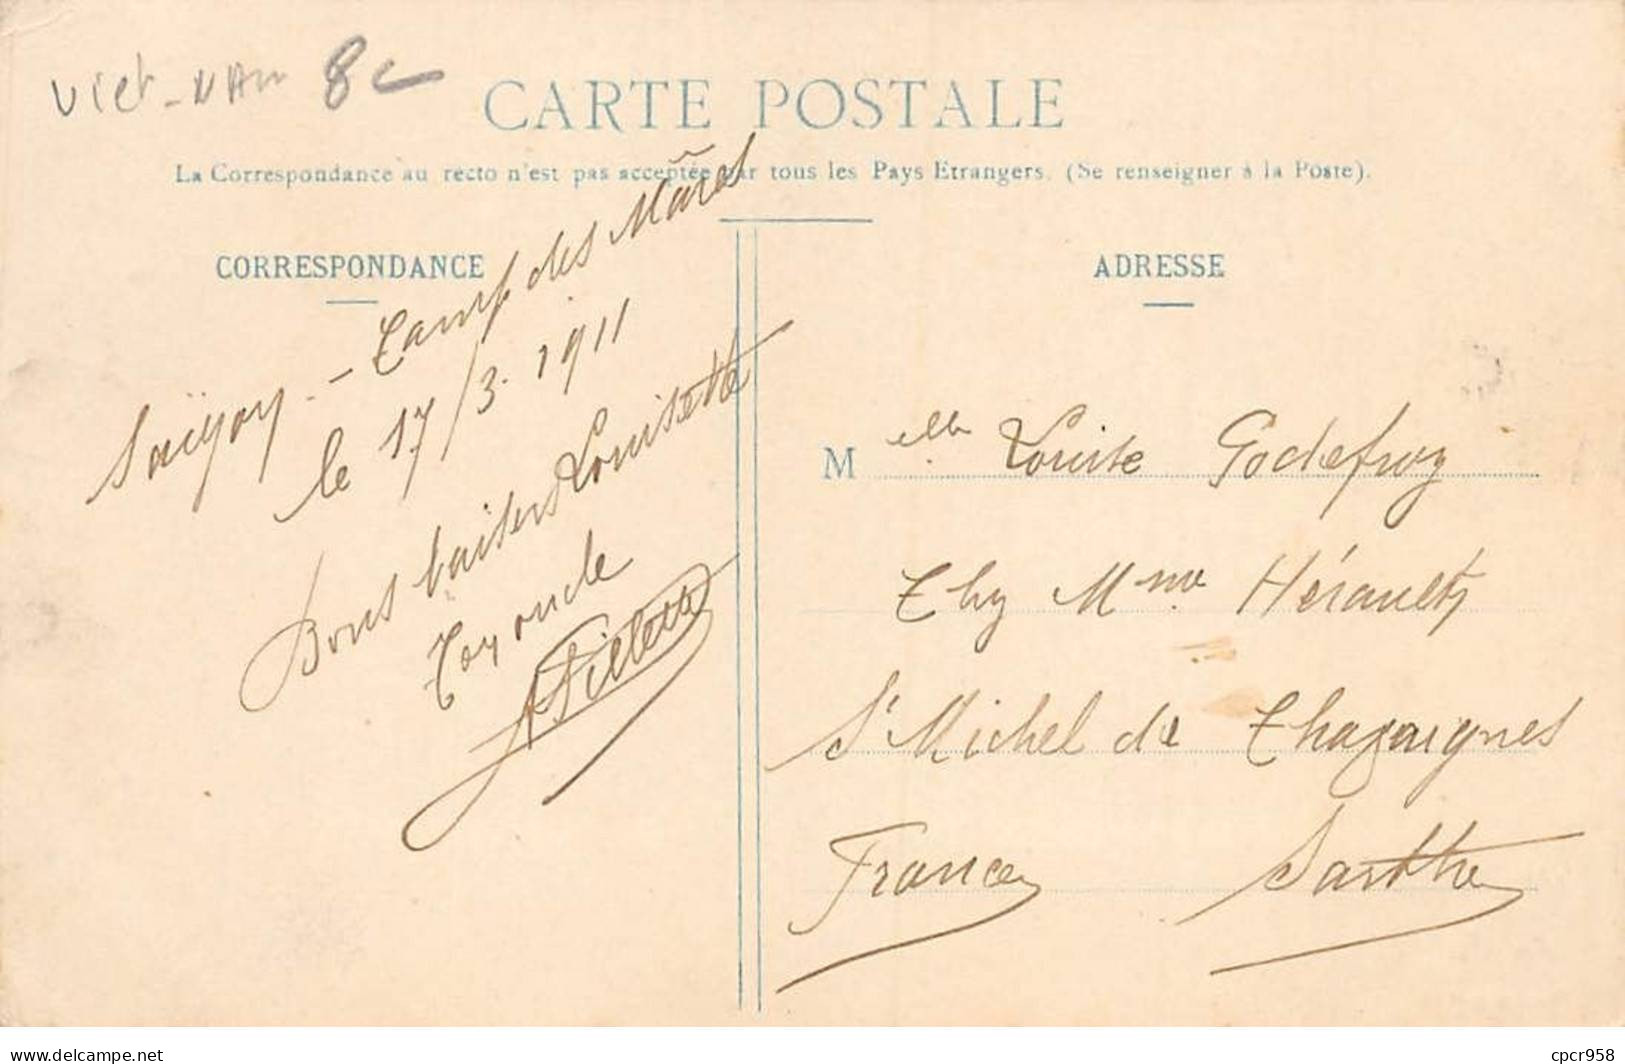 Viet-Nam 8c
CARTE POSTALE
La Correspondance au recto n'est pas acceptée par tous les Pays Etrangers. (Se renseigner à la Poste).
CORRESPONDANCE
Saïgon - Camp des Mares
le 17/3. 1911
Bons baisers Louisette
Ton oncle
ADRESSE
Melle Louise Godefroy
Chez Mme Hérault
St Michel de Chavaignes
France Sarthe
www.delcampe.net
cpcr958